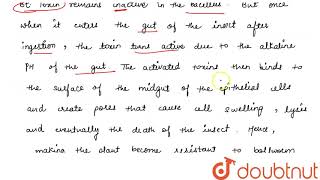 Bt toxin remains inactive in the bacillus. But once
when it enters the gut of the insect after
ingestion, the toxin turns active due to the alkaline
PH of the gut. The activated toxins then binds to
the surface of the midgut of the epithelial cells
and create pores that cause cell swelling, lysis
and eventually the death of the insect. Hence,
making the plant become resistant to bollworm
doubtnut